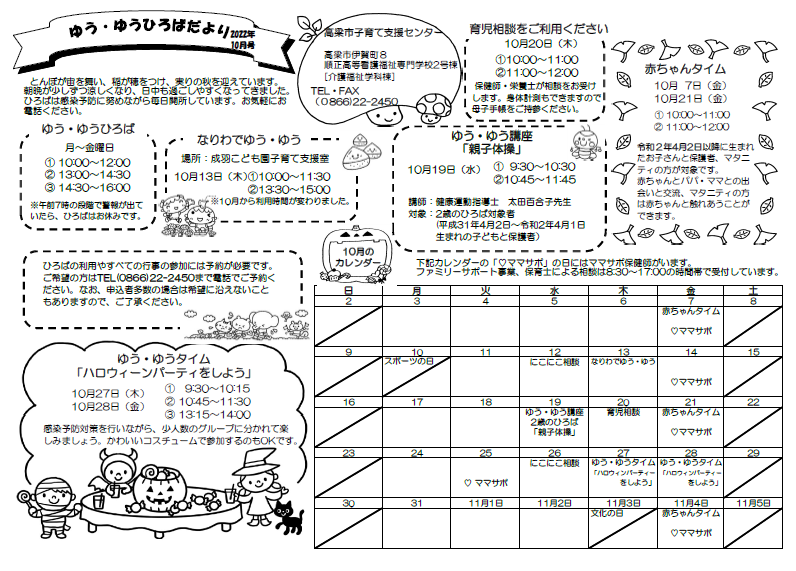 ゆう・ゆうひろばだより
2022年
10月号
とんぼが宙を舞い、稲が穂をつけ、実りの秋を迎えています。
朝晩が少しずつ涼しくなり、日中も過ごしやすくなってきました。
ひろばは感染予防に努めながら毎日開所しています。お気軽にお
電話ください。
高梁市子育て支援センター
高梁市伊賀町8
順正高等看護福祉専門学校2号棟
[介護福祉学科棟]
TEL・FAX
(0866)22-2450
育児相談をご利用ください
10月20日（木）
①10:00～11:00
②11:00～12:00
保健師・栄養士が相談をお受け
します。身体計測もできますので
母子手帳をご持参ください。
赤ちゃんタイム
10月 7日（金）
10月21日（金）
① 10:00～11:00
② 11:00～12:00
令和2年4月2日以降に生まれ
たお子さんと保護者、マタニ
ティの方が対象です。
赤ちゃんとパパ・ママとの出
会いと交流、マタニティの方
は赤ちゃんと触れあうことが
できます。
ゆう・ゆうひろば
月～金曜日
① 10:00～12:00
② 13:00～14:30
③ 14:30～16:00
※午前7時の段階で警報が出て
いたら、ひろばはお休みです。
なりわでゆう・ゆう
場所：成羽こども園子育て支援室
10月13日（木）①10:00～11:30
②13:30～15:00
※10月から利用時間が変わりました。
ゆう・ゆう講座
「親子体操」
10月19日（水）
① 9:30～10:30
②10:45～11:45
講師：健康運動指導士 太田百合子先生
対象：2歳のひろば対象者
（平成31年4月2日～令和2年4月1日
生まれの子どもと保護者）
ひろばの利用やすべての行事の参加には予約が必要です。
ご希望の方はTEL(0866)22-2450まで電話でご予約く
ださい。なお、申込者多数の場合は希望に沿えないこと
もありますので、ご了承ください。
10月の
カレンダー
下記カレンダーの「♡ママサポ」の日にはママサポ保健師がいます。
ファミリーサポート事業、保育士による相談は8:30～17:00の時間帯で受付しています。
ゆう・ゆうタイム
「ハロウィーンパーティをしよう」
10月27日（木）
10月28日（金）
① 9:30～10:15
② 10:45～11:30
③ 13:15～14:00
感染予防対策を行いながら、少人数のグループに分かれて楽
しみましょう。かわいいコスチュームで参加するのもOKです。
日 月 火 水 木 金 土
2 3 4 5 6 7 8
赤ちゃんタイム
♡ママサポ
9 10 11 12 13 14 15
スポーツの日 にこにこ相談 なりわでゆう・ゆう
♡ママサポ
16 17 18 19 20 21 22
ゆう・ゆう講座 育児相談 赤ちゃんタイム
2歳のひろば
「親子体操」 ♡ママサポ
23 24 25 26 27 28 29
にこにこ相談 ゆう・ゆうタイム ゆう・ゆうタイム
「ハロウィンパーティー 「ハロウィンパーティー
♡ ママサポ をしよう」 をしよう」
30 31 11月1日 11月2日 11月3日 11月4日 11月5日
文化の日 赤ちゃんタイム
♡ママサポ